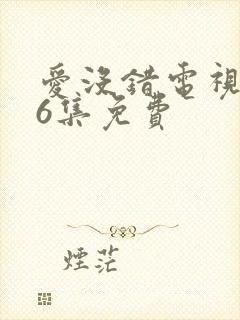 愛沒錯電視
6集免費
煙茫